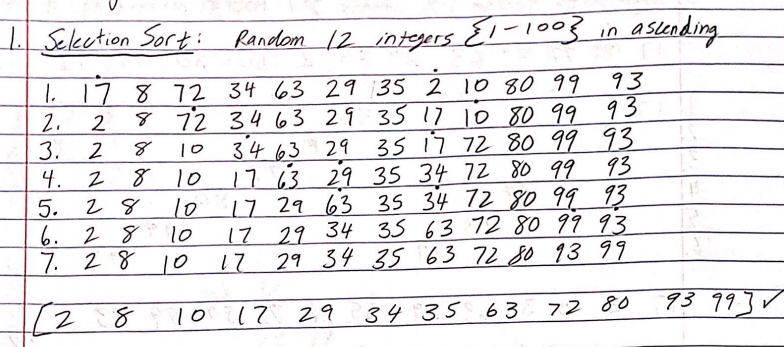 1. Selection Sort: Random 12 integers {1-100} in ascending
1. 17 8 72 34 63 29 35 2 10 80 99 93
2. 2 8 72 34 63 29 35 17 10 80 99 93
3. 2 8 10 34 63 29 35 17 72 80 99 93
4. 2 8 10 17 63 29 35 34 72 80 99 93
5. 2 8 10 17 29 63 35 34 72 80 99 93
6. 2 8 10 17 29 34 35 63 72 80 99 93
7. 2 8 10 17 29 34 35 63 72 80 93 99
[2 8 10 17 29 34 35 63 72 80 93 99] ✓